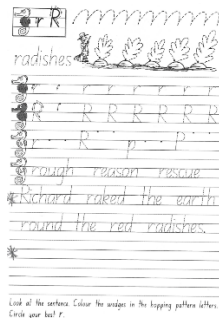 r R
radishes
r r r r r r r
R R R R R R
r R p P
rough reason rescue
Richard raked the earth
round the red radishes.
Look at the sentence. Colour the wedges in the hopping pattern letters.
Circle your best r.